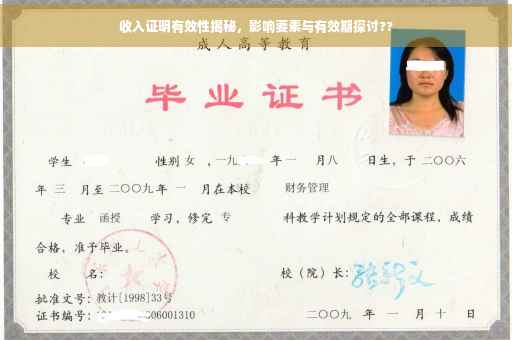 收入证明有效性揭秘，影响要素与有效期探讨??
成人高等教育
毕业证书
学生 性别 女 ，一九 年 一 月八 日生，于 二〇〇六
年 三 月至 二〇〇九 年 一 月在本校 财务管理
专业 函授 学习，修完 专 科教学计划规定的全部课程，成绩
合格，准予毕业。
校 名： 校（院）长：
批准文号：教计[1998]33号
证书编号： 06001310 二〇〇九 年 一 月 十 日